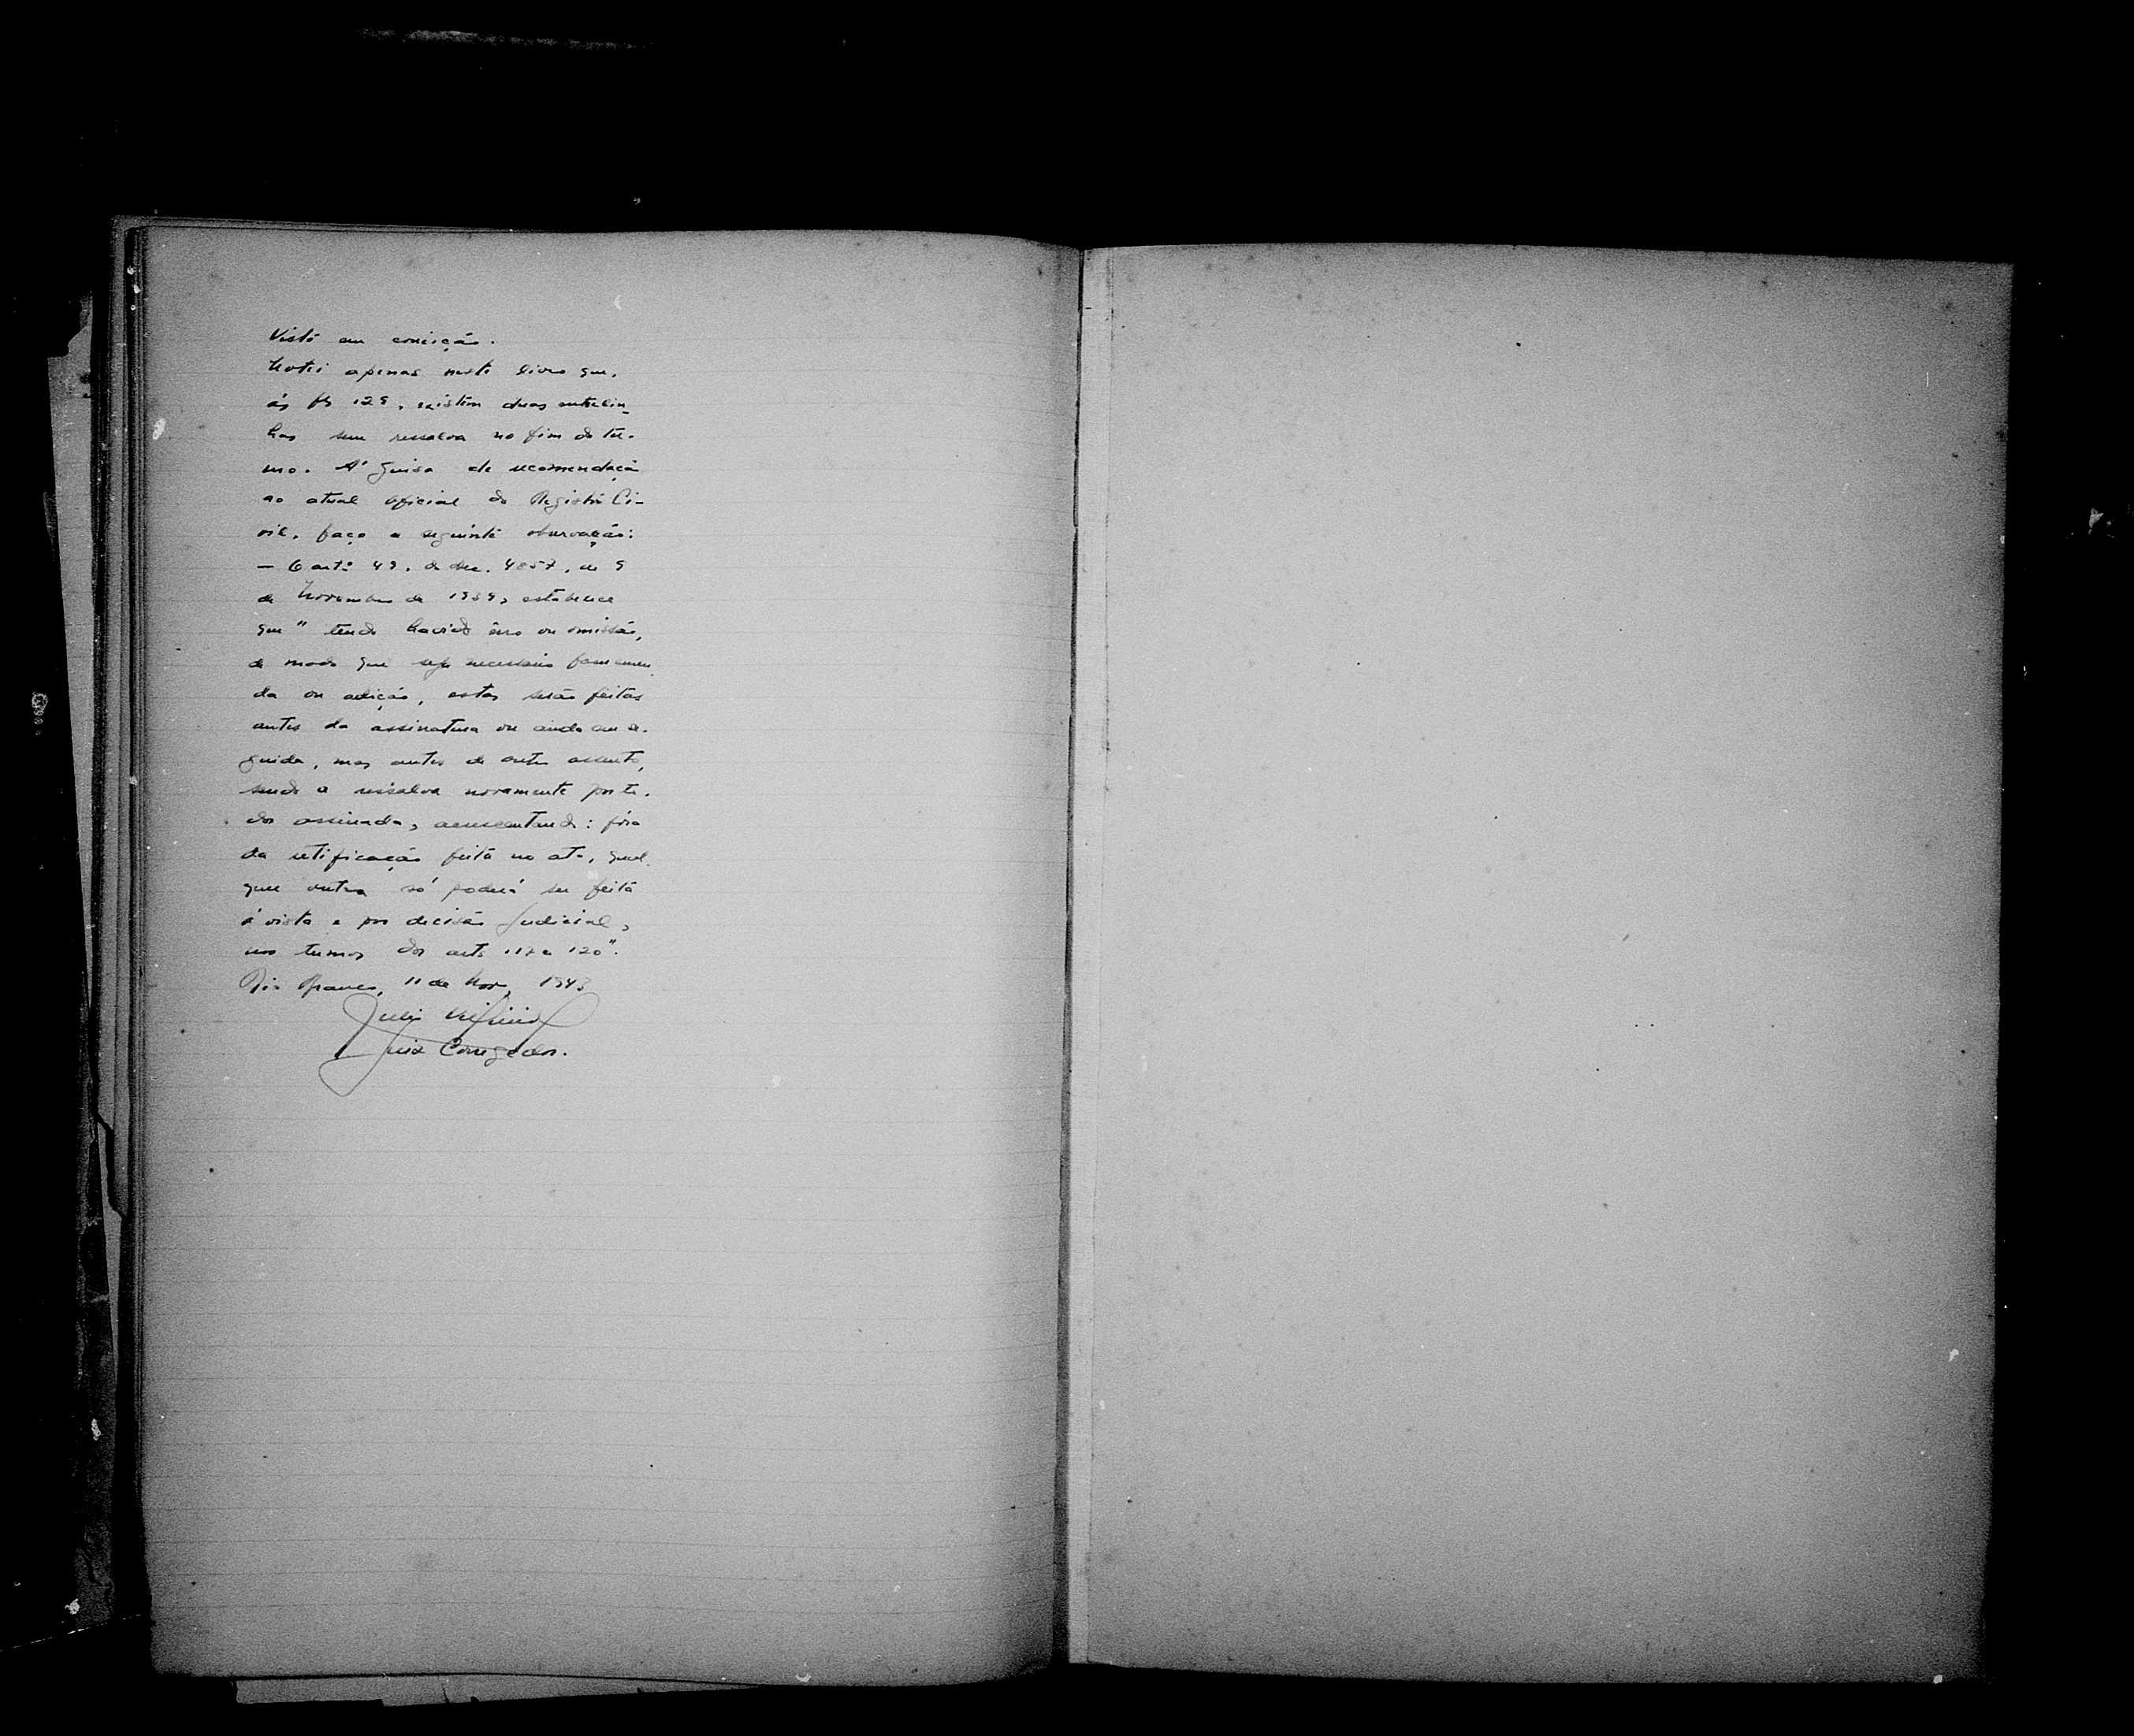 Visto em correição.
Notei apenas neste livro que,
ás fls 129, existem duas entrelin-
has sem ressalva no fim do ter-
mo. A' guisa de recomendação
ao atual oficial do Registro Ci-
vil, faço a seguinte observação:
— O artº 49, do dec. 4857, de 9
de Novembro de 1939, estabelece
que " tendo havido êrro ou omissão,
de modo que seja necessario fazer emen
da ou adição, estas serão feitas
antes da assinatura ou ainda em se-
guida, mas antes de outro assento,
sendo a ressalva novamente por to-
dos assinada, acrescentando: fóra
da retificação feita no ato, qual
quer outra só poderá ser feita
á vista e por decisão judicial,
nos termos dos arts 117 a 120".
Rio Branco, 11 de Nov, 1943
Julio
Juiz Corregedor.